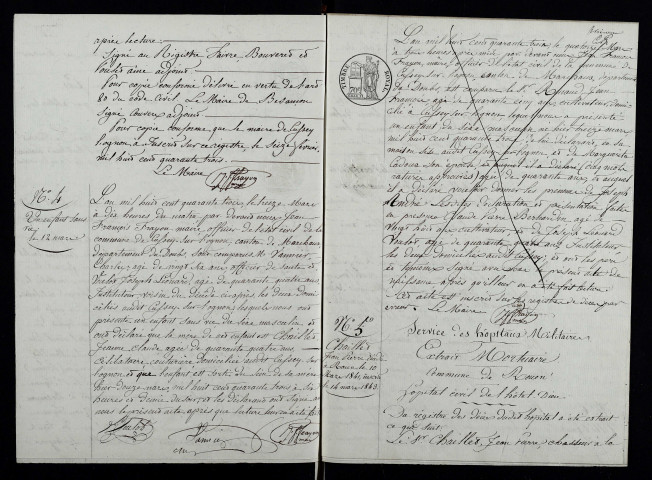 après lecture.
Signé au Registre Faivre, Bouvered et
Poulet aine adjoint
Pour copie conforme délivré en vertu de l'art
80 du code civil Le Maire de Besançon
Signé Couvers adjoint
Pour copie conforme que le maire de Cussey
l'ognon a inscrit sur ce registre le Seize février
mil huit cent quarante trois.
Le Maire
N° 4
Un enfant sans
vie
le 12 mars
L'an mil huit cent quarante trois le treize Mars
à dix heures du matin par devant nous Jean
François Frayon, maire officier de l'état civil de la
commune de Cussey sur l'ognon, canton de Marchaux
département du Doubs, sont comparus Mr Vannier
Charles, agé de vingt six ans officier de santé et
Vialot Joseph Léonard, agé de quarante quatre ans
Instituteur voisin du décédé ci-après les deux domi
ciliés audit Cussey sur l'ognon, lesquels nous ont
présenté un enfant sans vie du sexe masculin et
ont déclaré que la mère de cet enfant est Chaillet
Jeanne claude agée de quarante quatre ans
célibataire couturière domiciliée audit Cussey sur
l'ognon et que l'enfant est sorti du sein de sa mère
hier douze mars, mil huit cent quarante trois à six
heures et demie du soir, et les déclarants ont signé a
vec nous le présent acte après que lecture leur en a été fait
Vialot
Vannier
Frayon
TIMBRE ROYAL
L'an mil huit cent quarante trois, le quatorze Mars
à huit heures par devant nous Jean François
Frayon, maire, officier de l'état civil de la commune de
Cussey sur l'ognon, canton de Marchaux, département
du Doubs, est comparu le Sr Jean
François agé de quarante cinq ans cultivateur, domi
cilié à Cussey sur l'ognon lequel nous a présenté
un enfant du sexe masculin né hier treize mars
mil huit cent quarante trois
maison sise audit Cussey sur l'ognon et de Marguerite
son épouse
agée de quarante ans et auquel
il a déclaré vouloir donner les prénoms de Joseph
André Lesdites déclaration et présentation faites
en présence Claude Pierre agé de
vingt trois ans cultivateur, et de Joseph Léonard
Vialot agé de quarante quatre ans Instituteur
les deux domiciliés audit Cussey, et ont les père
et témoins signé avec nous le présent acte de
naissance après qu'il leur en a été fait lecture
Cet acte est inscrit sur les registres de décès par
erreur. Le Maire
N° 5
Chaillet
Jean Pierre décédé
à Rouen le 10
Mars 1841 inscrit
le 14 mars 1843
Service des hôpitaux Militaires
Extrait Mortuaire
Commune de Rouen
hopital civil de l'hôtel Dieu
Du registre des décès dudit hopital a été extrait
ce qui suit.
Le Sr Chaillet, Jean Pierre, chasseur a la